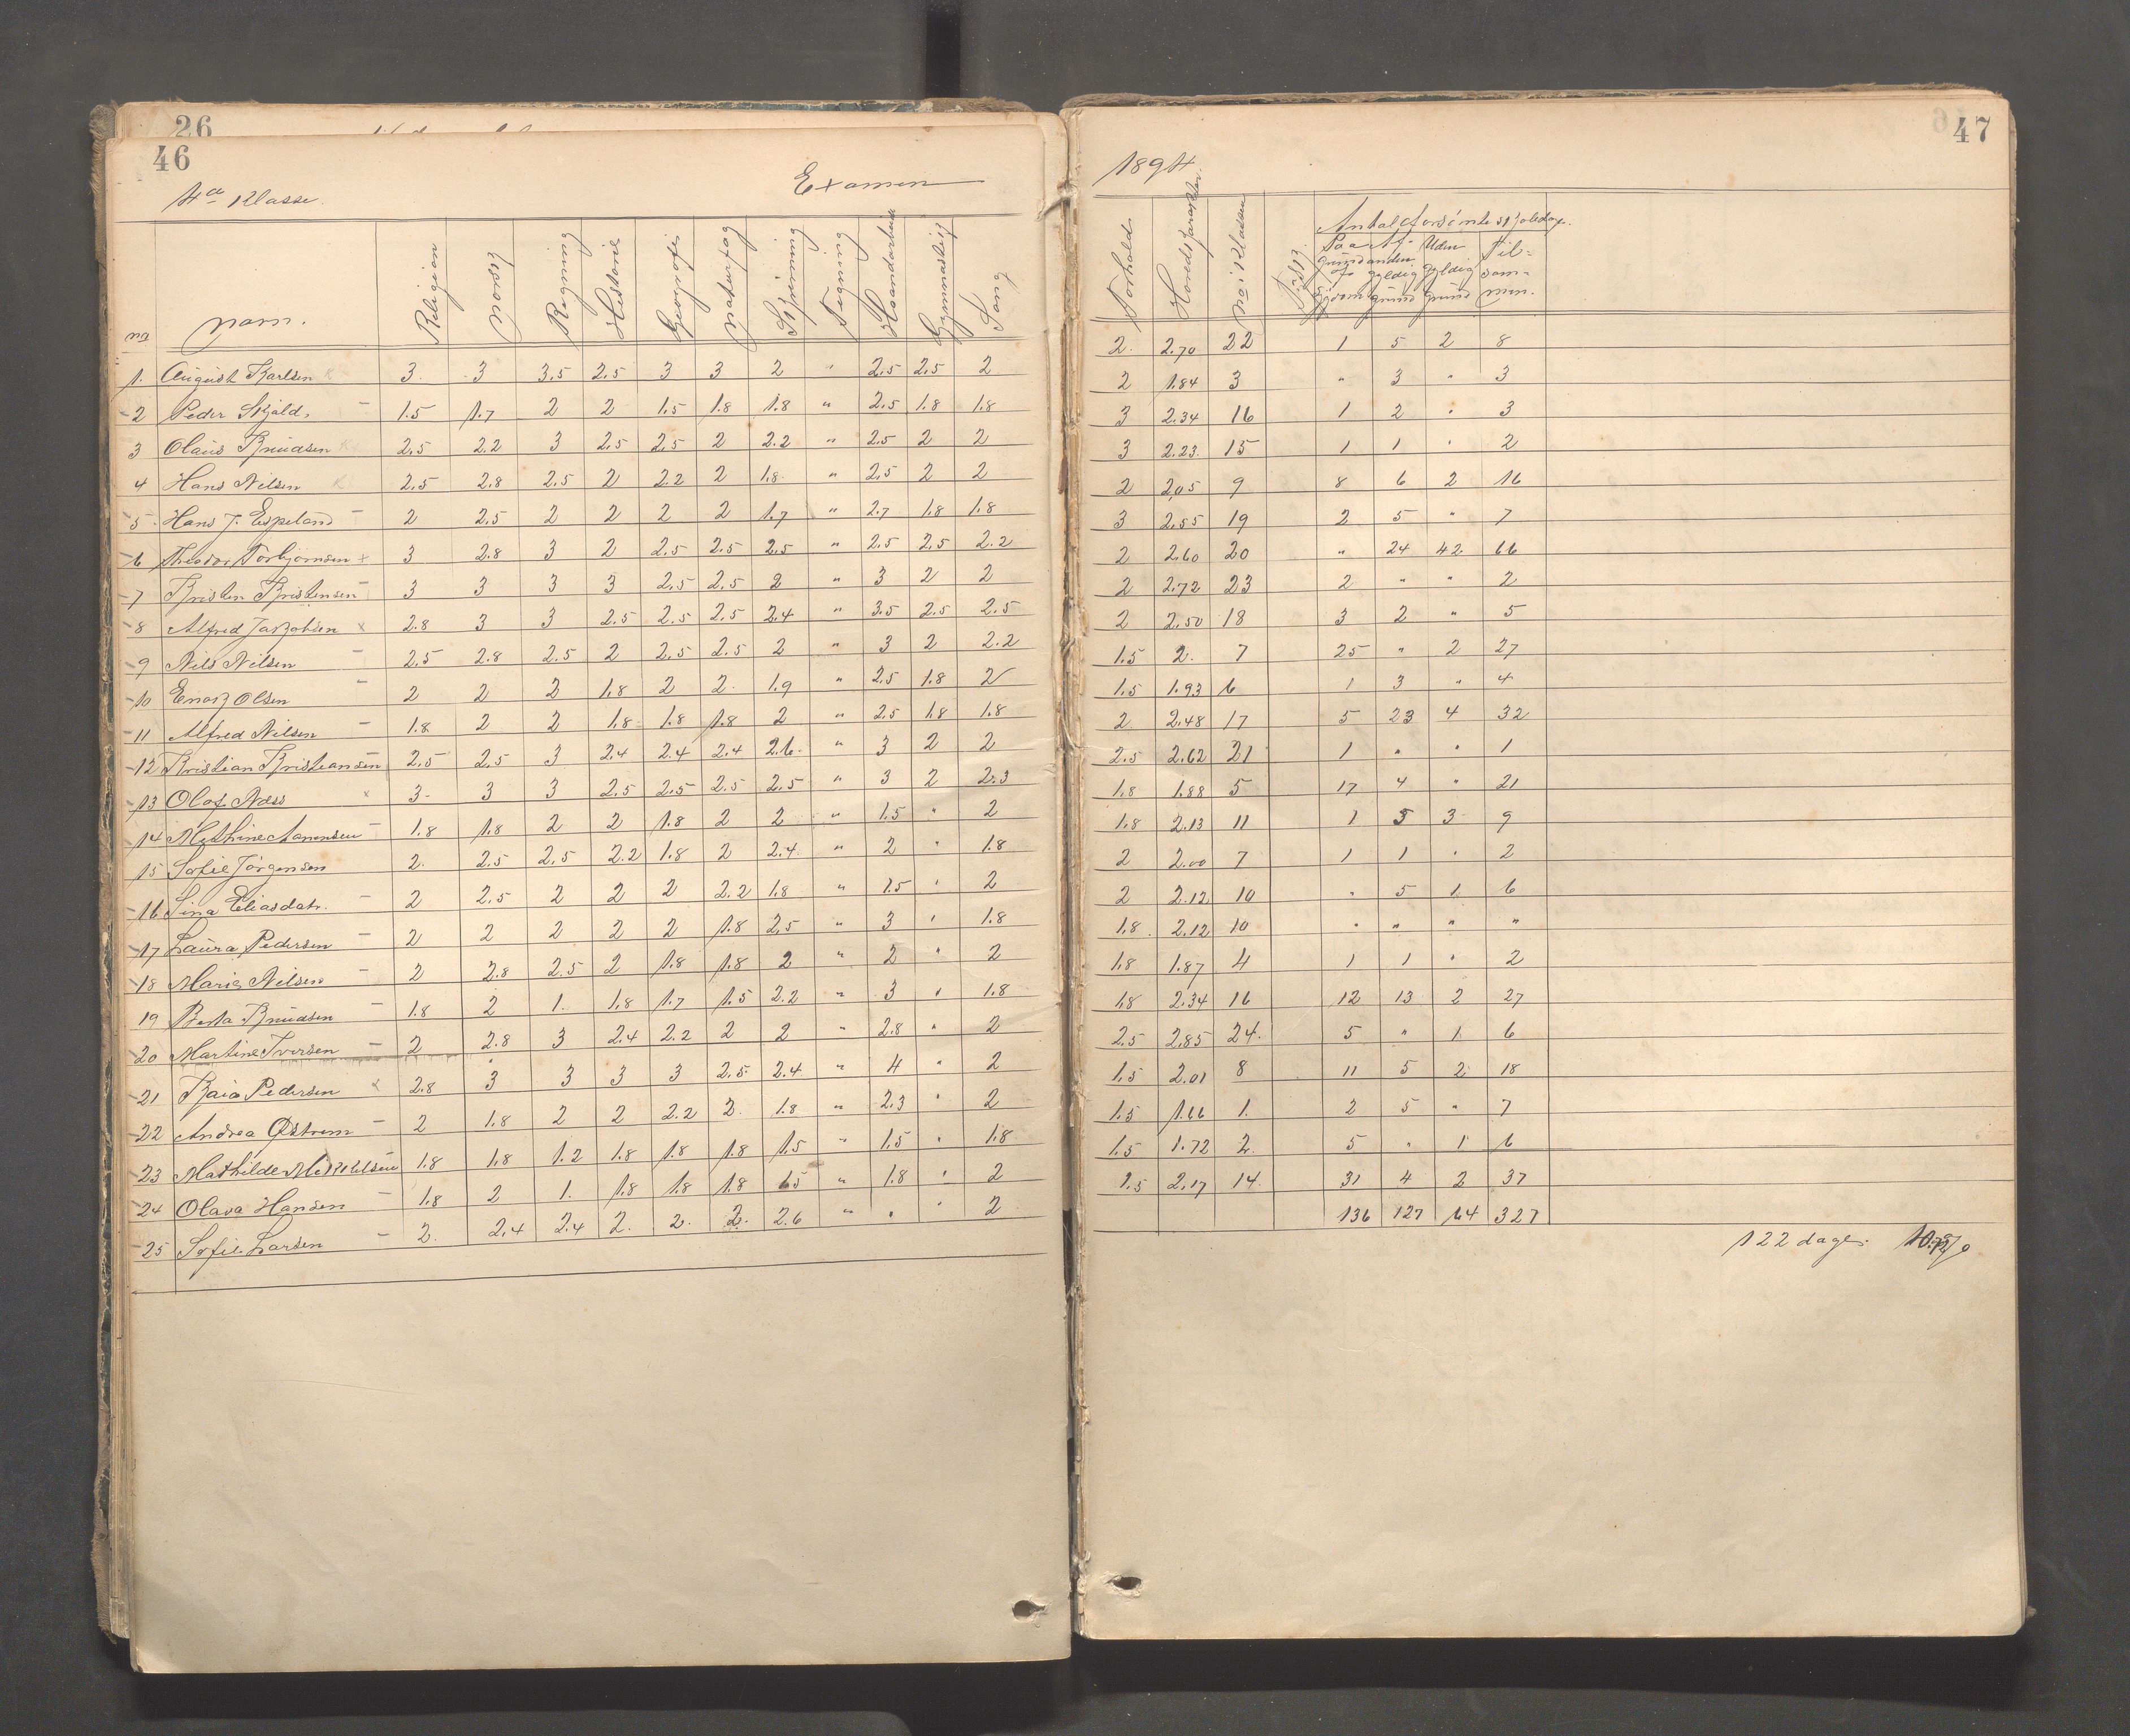 26
46
4de Klasse.
Examen
no Navn. Religion Norsk Regning Historie Geografi Naturfag Skrivning Tegning Haandarbeide Gymnastik Sang
1. August Karlsen 3. 3 3,5 2,5 3 3 2 " 2,5 2,5 2
2 Peder Skjold. — 1.5 1.7 2 2 1.5 1.8 1.8 " 2,5 1.8 1.8
3 Olaus Knudsen 2,5 2.2 3 2,5 2,5 2 2.2 " 2.5 2 2
4 Hans Nilsen 2,5 2.8 2,5 2 2.2 2 1.8 " 2,5 2 2
5 Hans J. Espeland — 2 2.5 2 2 2 2 1.7 " 2.7 1.8 1.8
6 Theodor Torbjørnsen + 3 2.8 3 2 2,5 2.5 2,5 " 2.5 2,5 2.2
7 Kristen Kristensen — 3 3 3 3 2,5 2,5 2 " 3 2 2
8 Alfred Jakobsen x 2.8 3 3 2.5 2.5 2.5 2.4 " 3.5 2.5 2.5
9 Nils Nilsen — 2.5 2.8 2.5 2 2,5 2.5 2 " 3 2 2.2
10 Enok Olsen — 2 2 2 1,8 2 2. 1.9 " 2.5 1.8 2
11 Alfred Nilsen — 1.8 2 2 1.8 1.8 1.8 2 " 2.5 1.8 1.8
12 Kristian Kristiansen 2,5 2,5 3 2.4 2.4 2.4 2.6. " 3 2 2
13 Olaf Næss x 3- 3 3 2.5 2.5 2.5 2,5 " 3 2 2.3
14 Methine Aanensen — 1.8 1.8 2 2 1.8 2 2 " 1.5 " 2
15 Sofie Jörgensen 2. 2.5 2,5 2.2 1.8 2 2.4 " 2 " 1.8
16 Sina Eliasdatr. — 2 2,5 2 2 2 2.2 1.8 " 1.5 " 2
17 Laura Pedersen — 2 2 2 2 2 1.8 2,5 " 3 " 1.8
18 Marie Nilsen — 2 2.8 2.5 2 1.8 1.8 2 " 2 " 2
19 Berta Knudsen — 1.8 2 1. 1.8 1.7 1.5 2.2 " 3 " 1.8
20 Martine Iversen — 2 2.8 3 2.4 2.2 2 2 " 2.8 " 2
21 Kaia Pedersen x 2.8 3 3 3 3 2.5 2.4 " 4 " 2
22 Andrea Østrem — 2 1.8 2 2 2.2 2. 1.8 " 2.3 " 2
23 Mathilde Mikkelsen 1.8 1.8 1.2 1.8 1.8 1.8 1.5 " 1.5 " 1.8
24 Olava Hansen — 1.8 2 1. 1.8 1.8 1.8 1.5 " 1.8 " 2
25 Sofie Larsen — 2. 2,4 2.4 2. 2. 2. 2.6 " " " 2
47
1894
Forhold. Hovedkarakter. No i Klassen Flid. Antal forsömte skoledage.
Paa grund af sygdom Af anden gyldig grund Uden gyldig grund Til-sam-men.
2. 2.70 22 1 5 2 8
2 1.84 3 " 3 " 3
3 2.34 16 1 2 " 3
3 2.23. 15 1 1 " 2
2 2,05 9 8 6 2 16
3 2,55 19 2 5 " 7
2 2.60 20 " 24 42. 66
2 2.72 23 2 " " 2
2 2.50 18 3 2 " 5
1.5 2. 7 25 " 2 27
1.5 1.93 6 1 3 " 4
2 2.48 17 5 23 4 32
2.5 2.62 21 1 " " 1
1.8 1.88 5 17 4 " 21
1.8 2.13 11 1 5 3 9
2 2.00 7 1 1 " 2
2 2.12 10 " 5 1. 6
1.8. 2.12 10 " " " "
1.8 1.87 4 1 1 " 2
1.8 2.34 16 12 13 2 27
2.5 2.85 24. 5 " 1. 6
1.5 2.01 8 11 5 2 18
1.5 1.66 1. 2 5 " 7
1.5 1.72 2. 5 " 1 6
1.5 2.17 14. 31 4 2 37
136 127 64 327
122 dage.